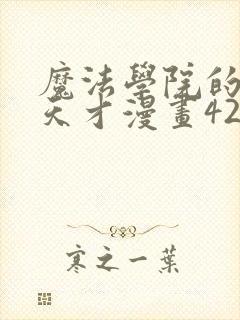 魔法學院的
天才漫畫42
寒之一葉